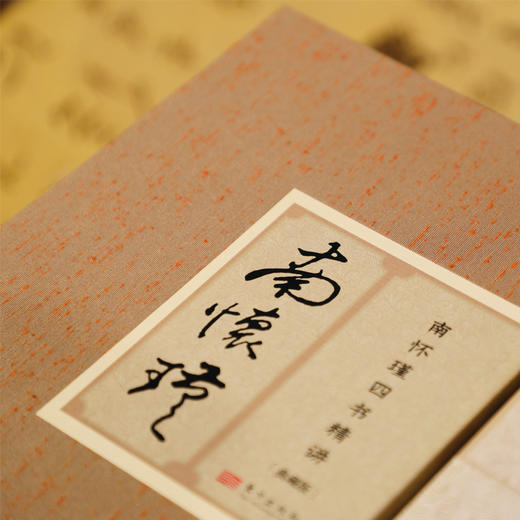 南怀瑾四书精讲
（典藏版）
南懷瑾